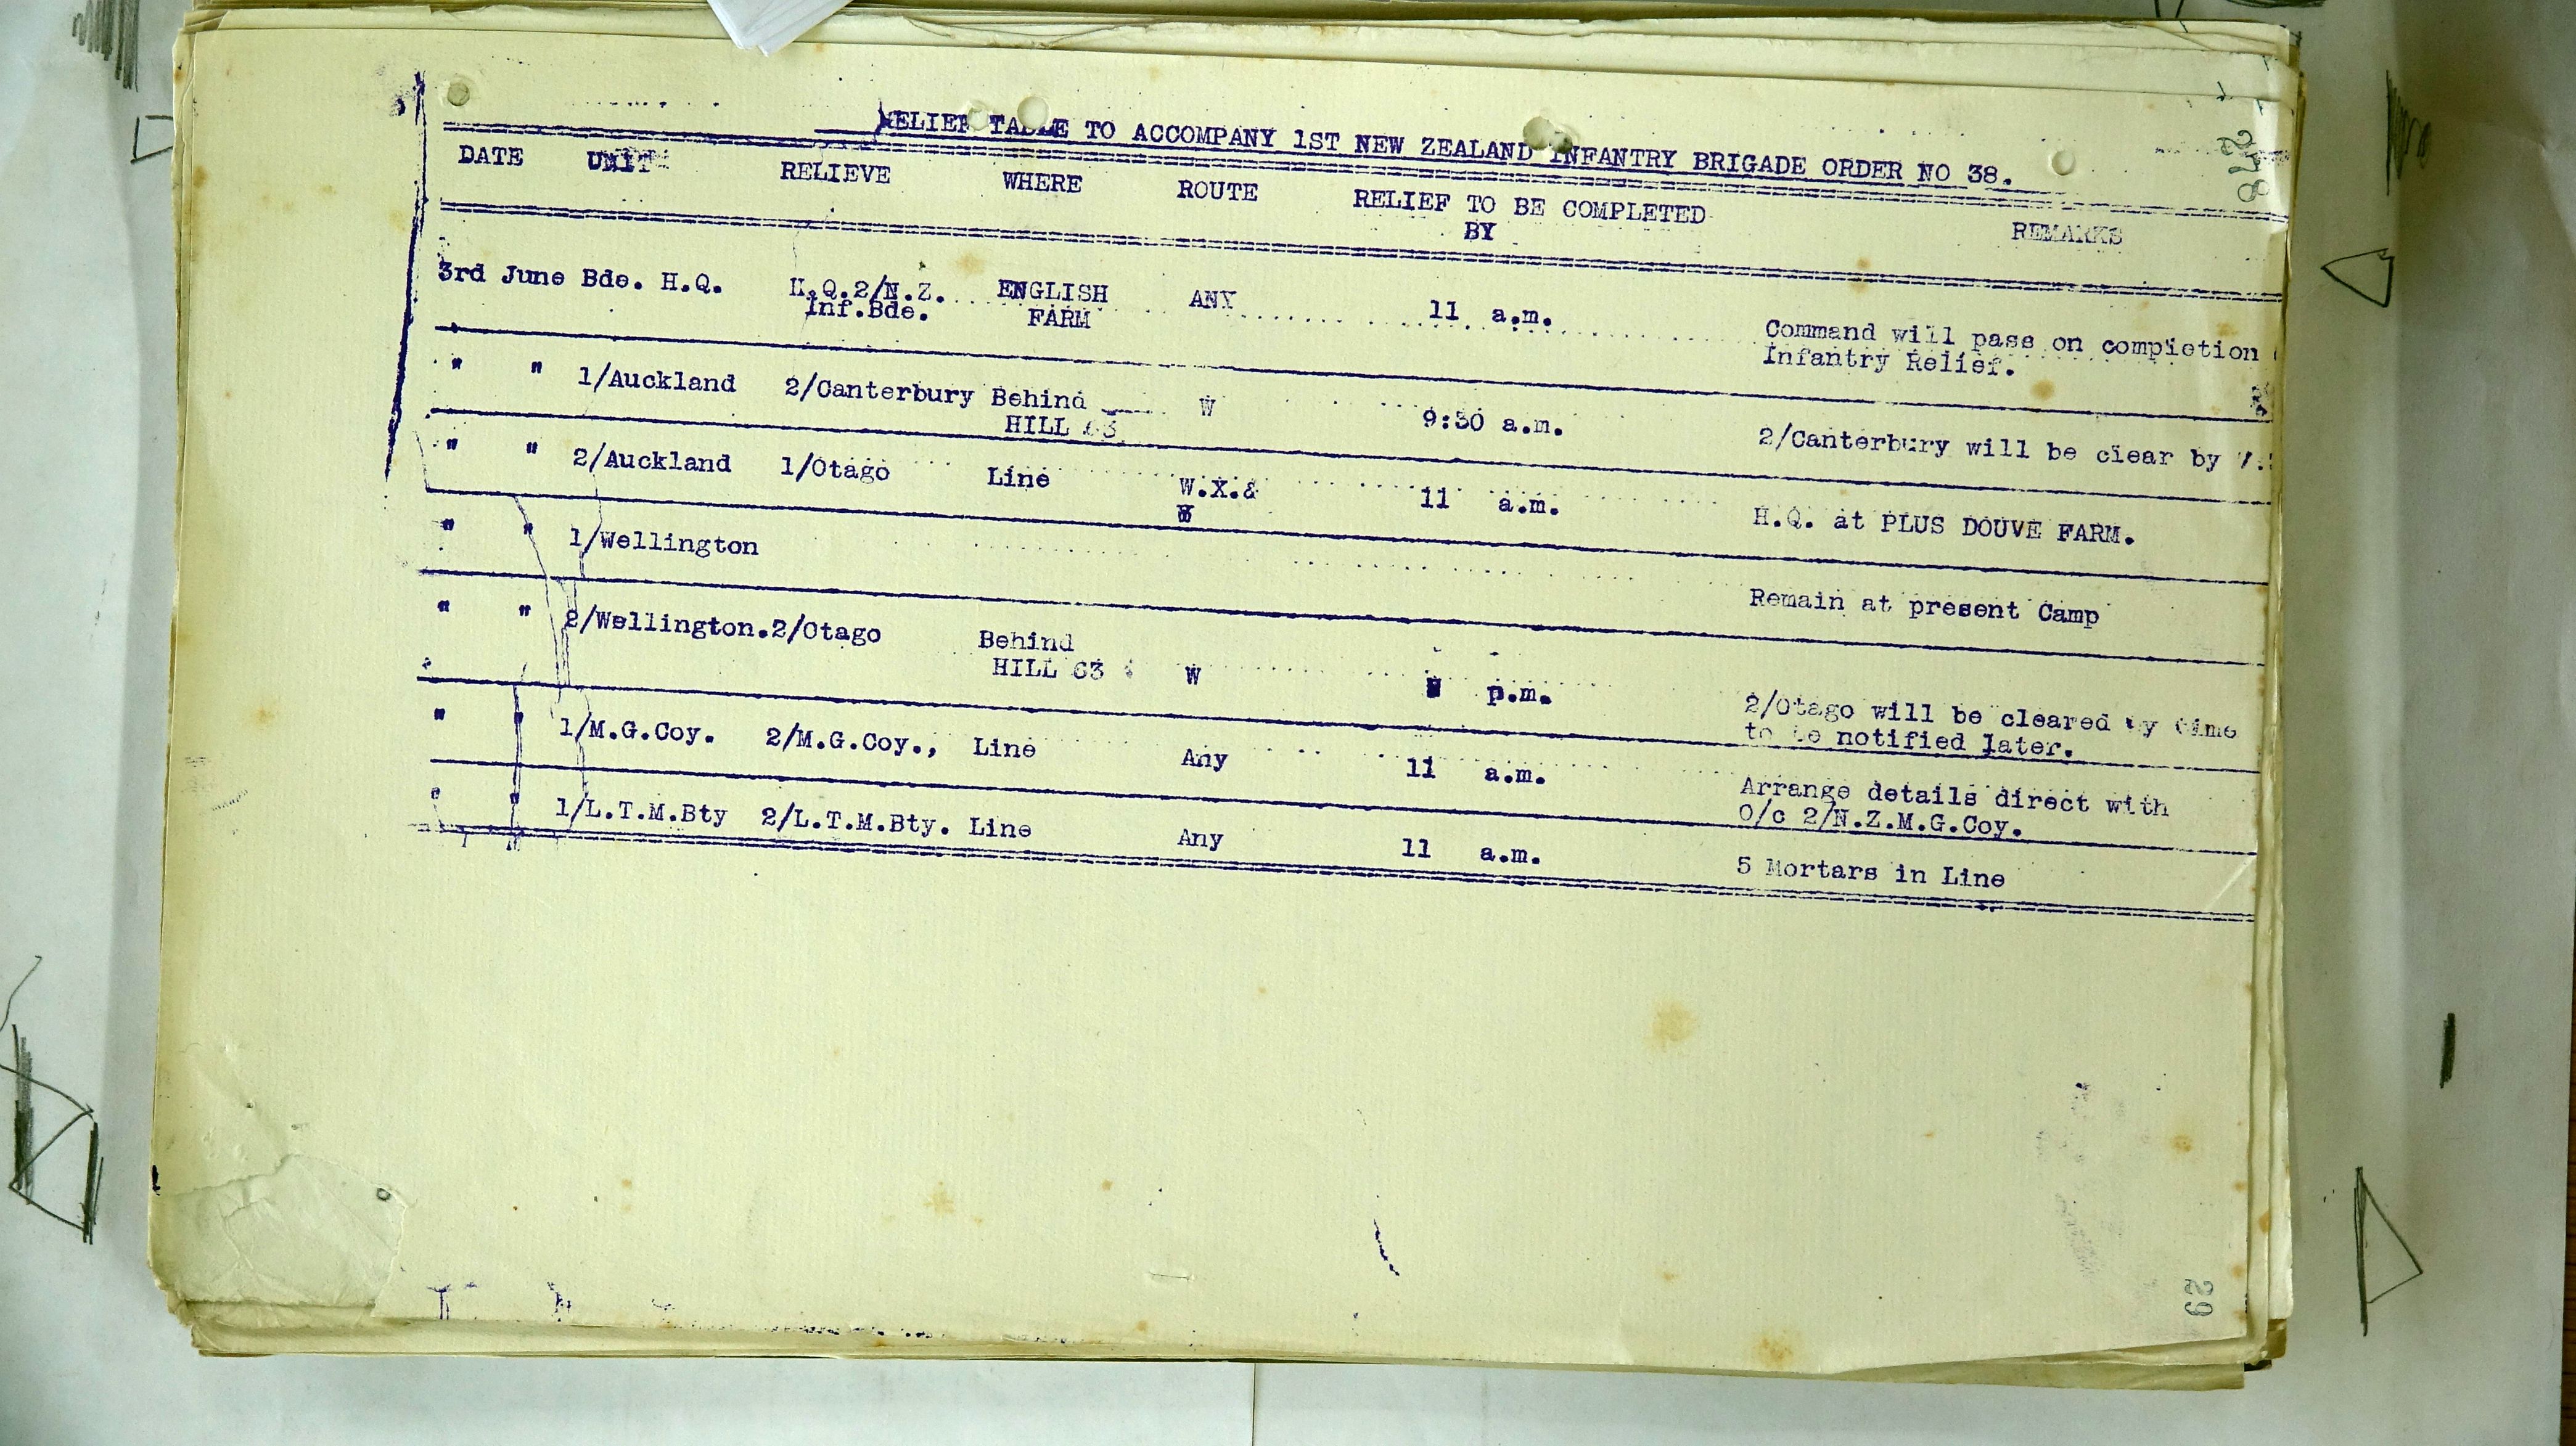 RELIEF TABLE TO ACCOMPANY 1ST NEW ZEALAND INFANTRY BRIGADE ORDER NO 38.
DATE UNIT RELIEVE WHERE ROUTE RELIEF TO BE COMPLETED BY REMARKS
3rd June Bde. H.Q. H.Q.2/N.Z. ENGLISH ANY 11 a.m. Command will pass on completion
Inf.Bde. FARM Infantry Relief.
" " 1/Auckland 2/Canterbury Behind W 9:30 a.m. 2/Canterbury will be clear by
HILL 63
" " 2/Auckland 1/Otago Line W.X.& 11 a.m. H.Q. at PLUS DOUVE FARM.
" " 1/Wellington Remain at present Camp
" " 2/Wellington. 2/Otago Behind
HILL 63 W p.m. 2/Otago will be cleared by time
to be notified later.
" " 1/M.G.Coy. 2/M.G.Coy., Line Any 11 a.m. Arrange details direct with
O/c 2/N.Z.M.G.Coy.
" " 1/L.T.M.Bty 2/L.T.M.Bty. Line Any 11 a.m. 5 Mortars in Line
278
29